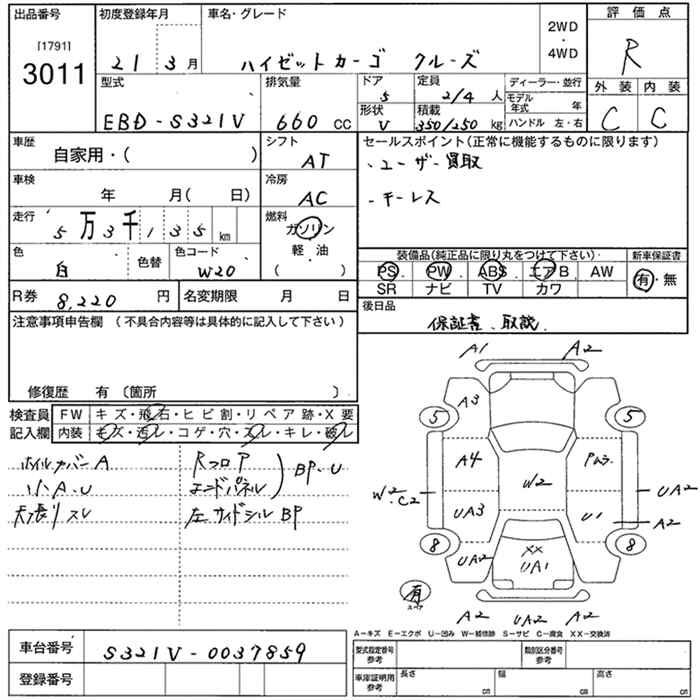 出品番号
[1791]
3011
初度登録年月
21 3月
車名・グレード
ハイゼットカーゴ クルーズ
2WD
・
4WD
評価点
R
外装 内装
C C
型式
EBD-S321V
排気量
660 CC
ドア
5
定員
2/4 人
形状
V
積載
350/250 kg
ディーラー・並行
モデル年式 年
ハンドル 左・右
車歴
自家用・( )
シフト
AT
車検
年 月( 日)
冷房
AC
走行
5万3千135km
燃料
ガソリン
軽・油
・
( )
色
白
色替
色コード
W20
R券 8,220 円
名変期限 月 日
セールスポイント(正常に機能するものに限ります)
・ユーザー買取
・キーレス
装備品(純正品に限り丸をつけて下さい)
PS PW ABS エアB AW
SR ナビ TV カワ
新車保証書
有・無
後日品
保証書、取説
注意事項申告欄 (不具合内容等は具体的に記入して下さい)
修復歴 有 〔箇所 〕
検査員記入欄
FW キズ・飛石・ヒビ割・リペア跡・X要
内装 キズ・汚レ・コゲ・穴・スレ・キレ・破レ
ホイルカバーA
小A・U
天張りスレ
Rフロア
エンドパネル
) BP・U
左サイドシルBP
A1 A2
A3
5 5
A4
W2
W2・C2
UA3
U1
UA2
A2
8 8
UA2
XX
UA1
有
スペア
A2 UA2 A2
A−キズ E−エクボ U−凹み W−補修跡 S−サビ C−腐食 XX−交換済
車台番号
S321V-0037859
登録番号
型式指定番号
参考
類別区分番号
参考
車庫証明用
参考
長さ cm
幅 cm
高さ cm